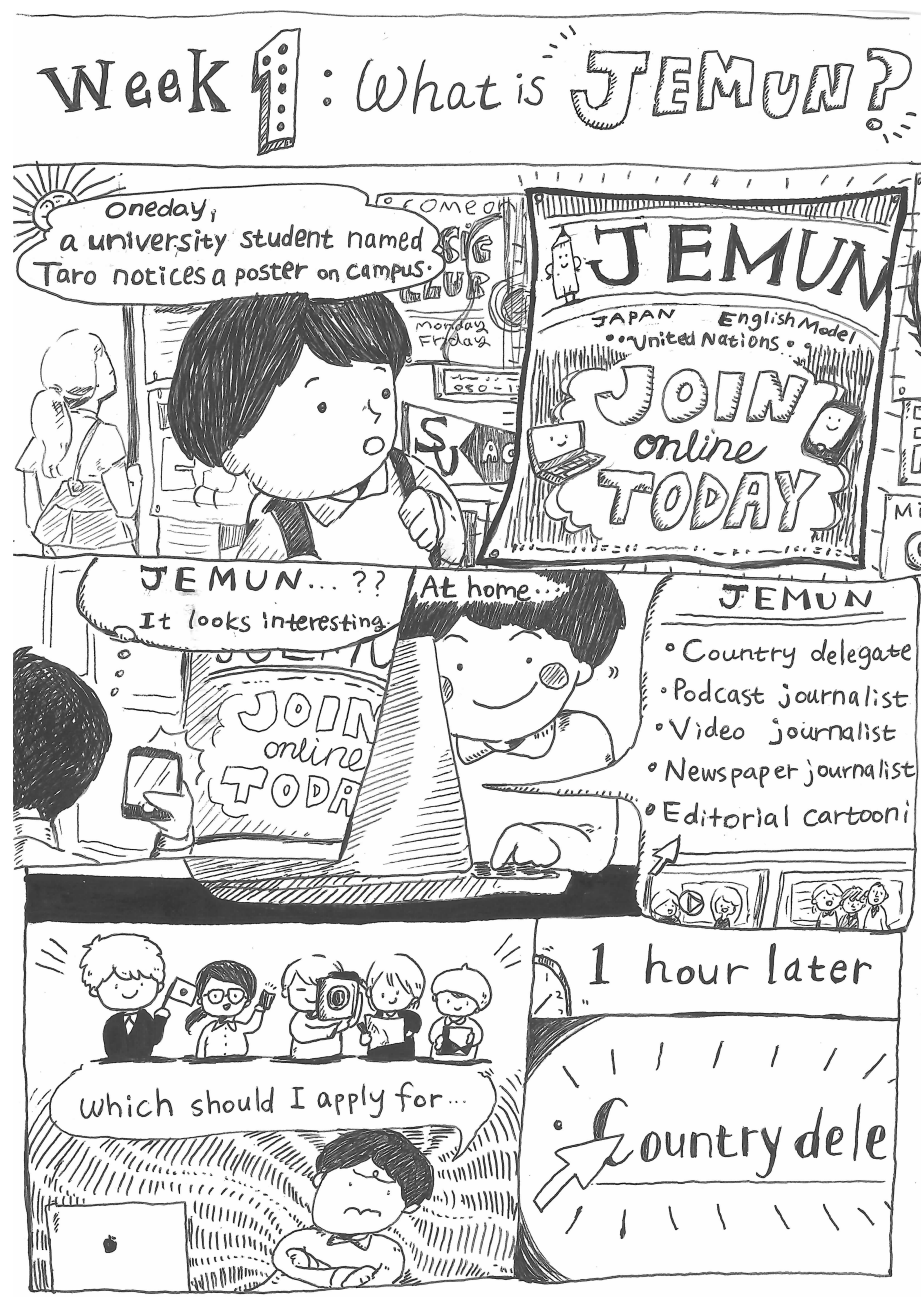 Week 1: What is JEMUN?
Oneday,
a university student named
Taro notices a poster on campus.
COME ON
Monday
Friday
JEMUN
JAPAN English Model
United Nations
JOIN
online
TODAY
JEMUN...??
It looks interesting.
JOIN
online
TODA
At home...
JEMUN
• Country delegate
• Podcast journalist
• Video journalist
• Newspaper journalist
• Editorial cartooni
Which should I apply for...
1 hour later
• Country dele